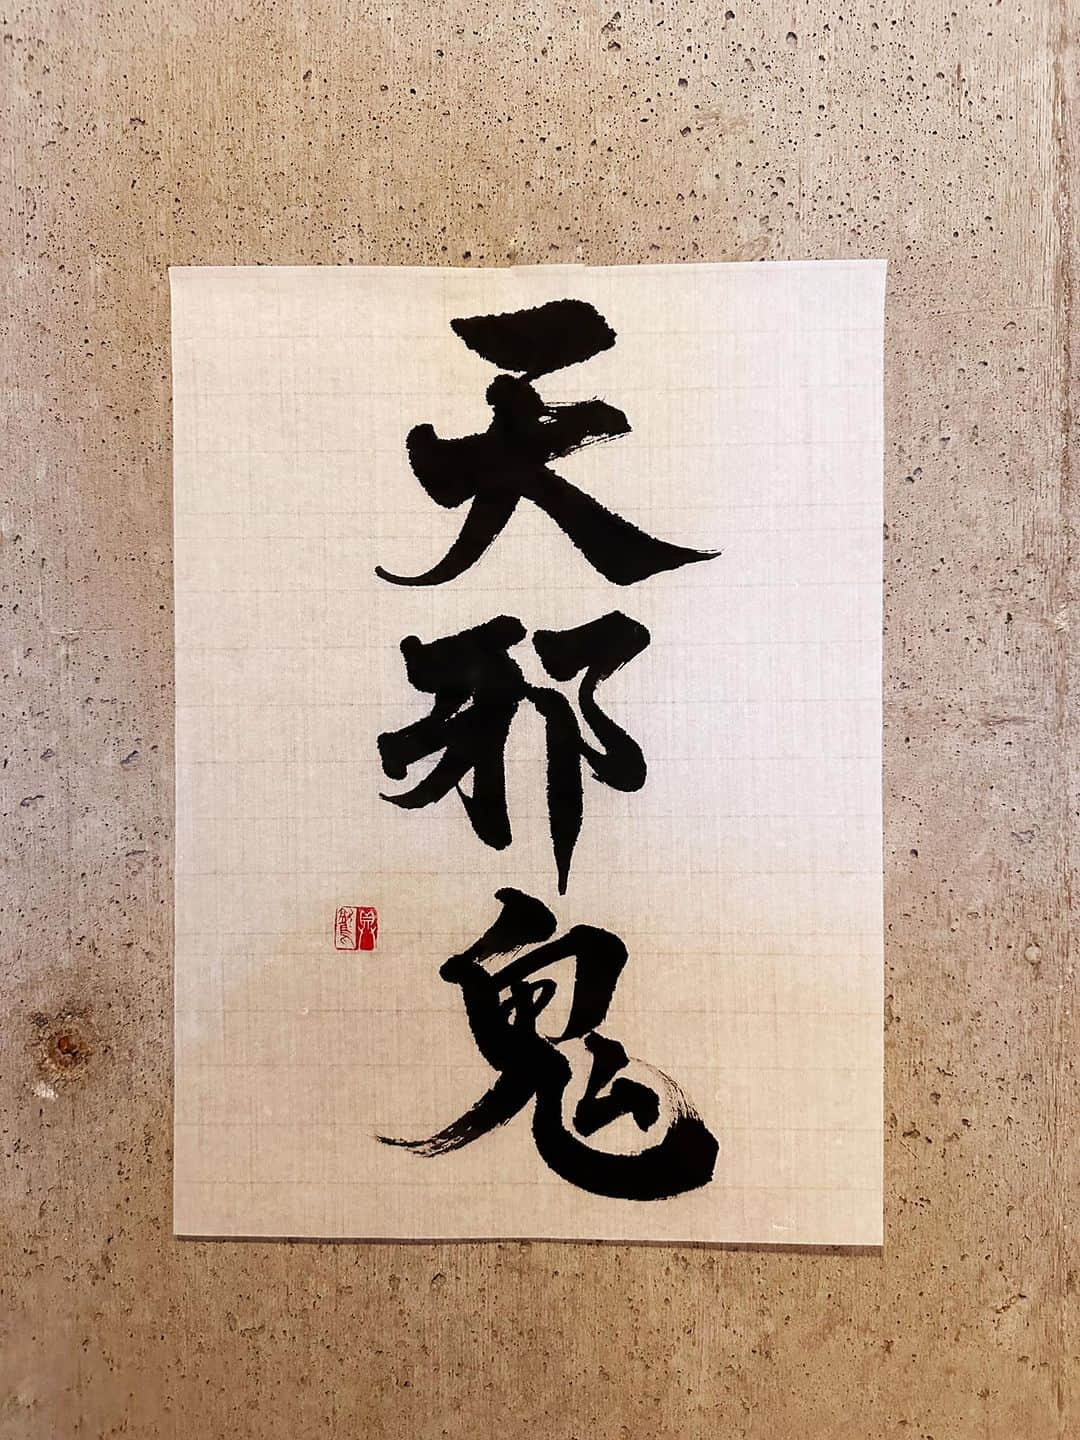 天邪鬼